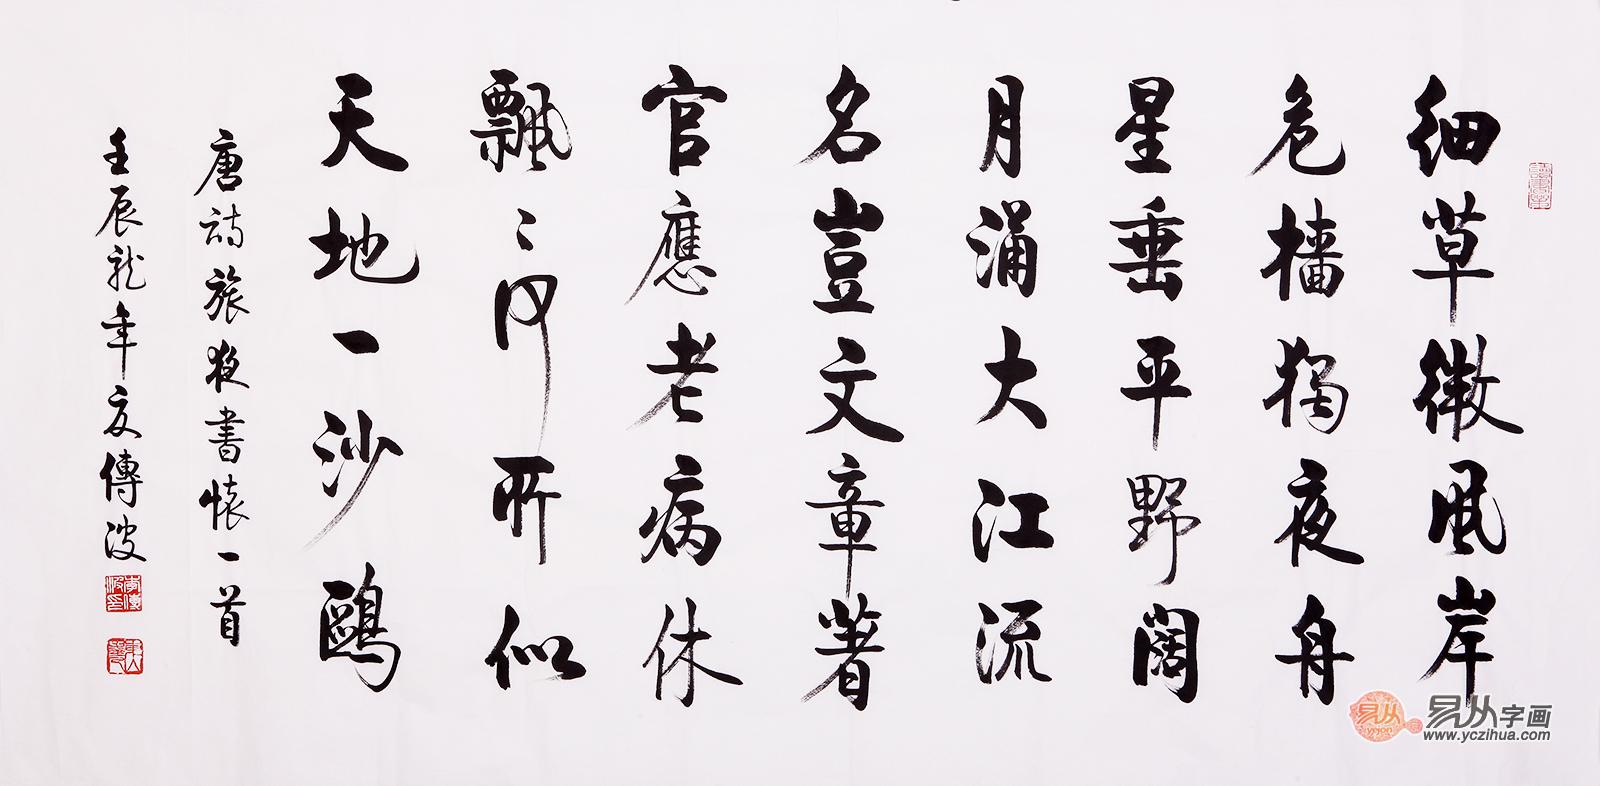 细草微风岸
危樯獨夜舟
星垂平野阔
月涌大江流
名豈文章著
官應老病休
飄〻何所似
天地一沙鷗
唐詩旅夜書懷一首
壬辰龙年友傳波
易从字画
www.yczihua.com